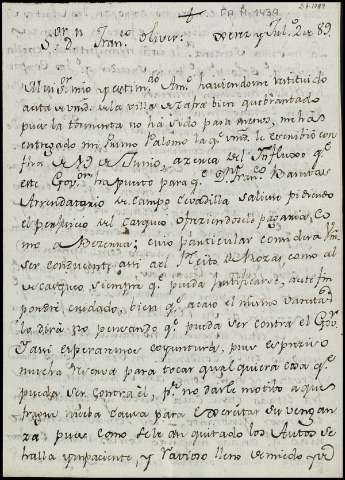 S.or D.n Fran.co Oliver. y Jul.o 2 de 89.
Mui S.or mio y estim.do Am.o haviendome restituido
a esta de vmd. de la villa de Zafra bien quebrantado
pues la tormenta no ha sido para menos, me has
entregado mi Primo Palomo la q.e vmd. le escribio con
fha de 19 de Junio, acerca del Influxo q.e
este Gov.or ha puesto para q.e D.n Fran.co
Arrendatario de Campo Cevadilla saliese pidiendo
el perjuicio del ofreciendosele pagaria, Co
mo a cuio particular considera Vm.
ser conducente asi al Pleito de Rozas, como al
de siempre q.e pueda justificarse, aqui
pondré cuidado, bien q.e acaso el mismo
lo dirá no pensando q.e pueda ser contra el Gov.or
y asi esperaremos coyuntura, pues es preciso
mucha reserva para tocar qual quiera cosa q.e
pueda ser contra él, p.r no darle motivo a que
nueva causa para executar su vengan
za pues como se le an quitado los Autos se
halla ympaciente, y ravioso lleno de miedo y